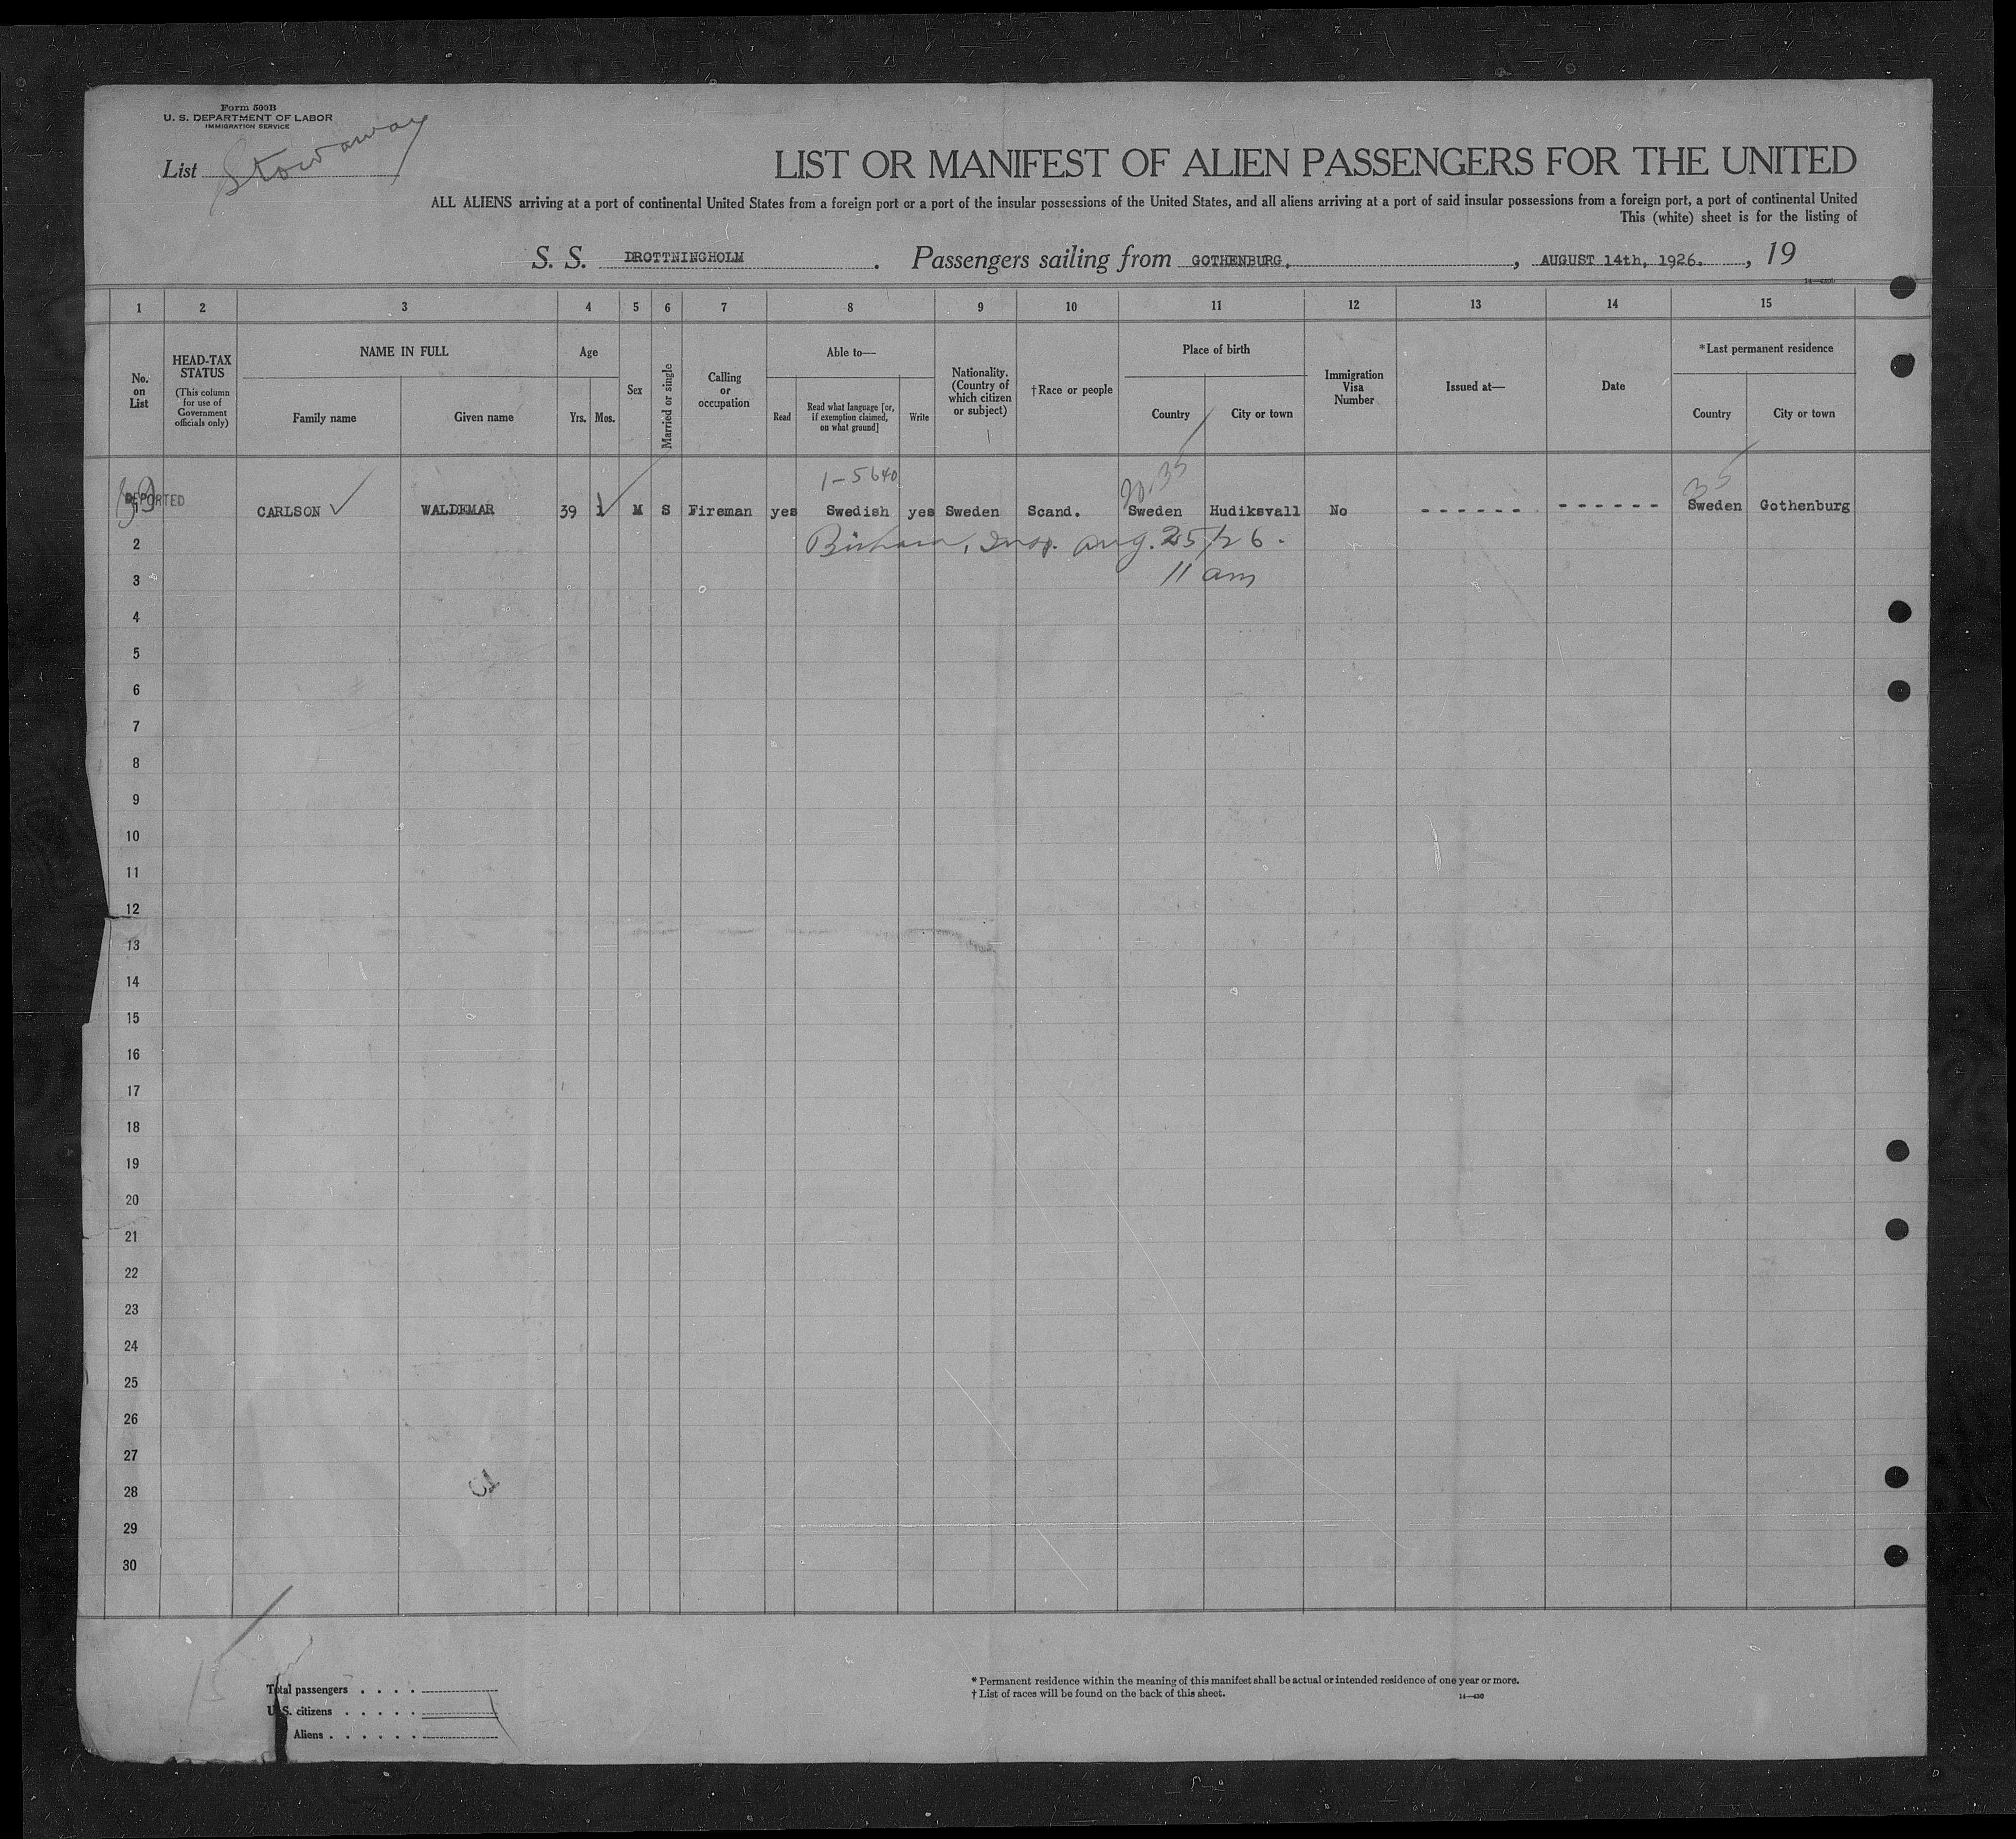 Form 500B
U. S. DEPARTMENT OF LABOR
IMMIGRATION SERVICE
List Stowaway
LIST OR MANIFEST OF ALIEN PASSENGERS FOR THE UNITED
ALL ALIENS arriving at a port of continental United States from a foreign port or a port of the insular possessions of the United States, and all aliens arriving at a port of said insular possessions from a foreign port, a port of continental United
This (white) sheet is for the listing of
S. S. DROTTNINGHOLM. Passengers sailing from GOTHENBURG, , AUGUST 14th, 1926. , 19
1 2 3 4 5 6 7 8 9 10 11 12 13 14 15
No. on List
HEAD-TAX STATUS (This column for use of Government officials only)
NAME IN FULL
Family name Given name
Age
Yrs. Mos.
Sex
Married or single
Calling or occupation
Able to—
Read
Read what language [or, if exemption claimed, on what ground]
Write
Nationality. (Country of which citizen or subject)
†Race or people
Place of birth
Country City or town
Immigration Visa Number
Issued at—
Date
*Last permanent residence
Country City or town
1-5640
35
DEPORTED CARLSON WALDEMAR 39 1 M S Fireman yes Swedish yes Sweden Scand. Sweden Hudiksvall No ------- ------ Sweden Gothenburg
2 Insp. Aug. 25/26.
3 11 am
4
5
6
7
8
9
10
11
12
13
14
15
16
17
18
19
20
21
22
23
24
25
26
27
28
29
30
15
Total passengers . . . .
U. S. citizens . . . . .
Aliens . . . . . .
* Permanent residence within the meaning of this manifest shall be actual or intended residence of one year or more.
† List of races will be found on the back of this sheet.
14—430